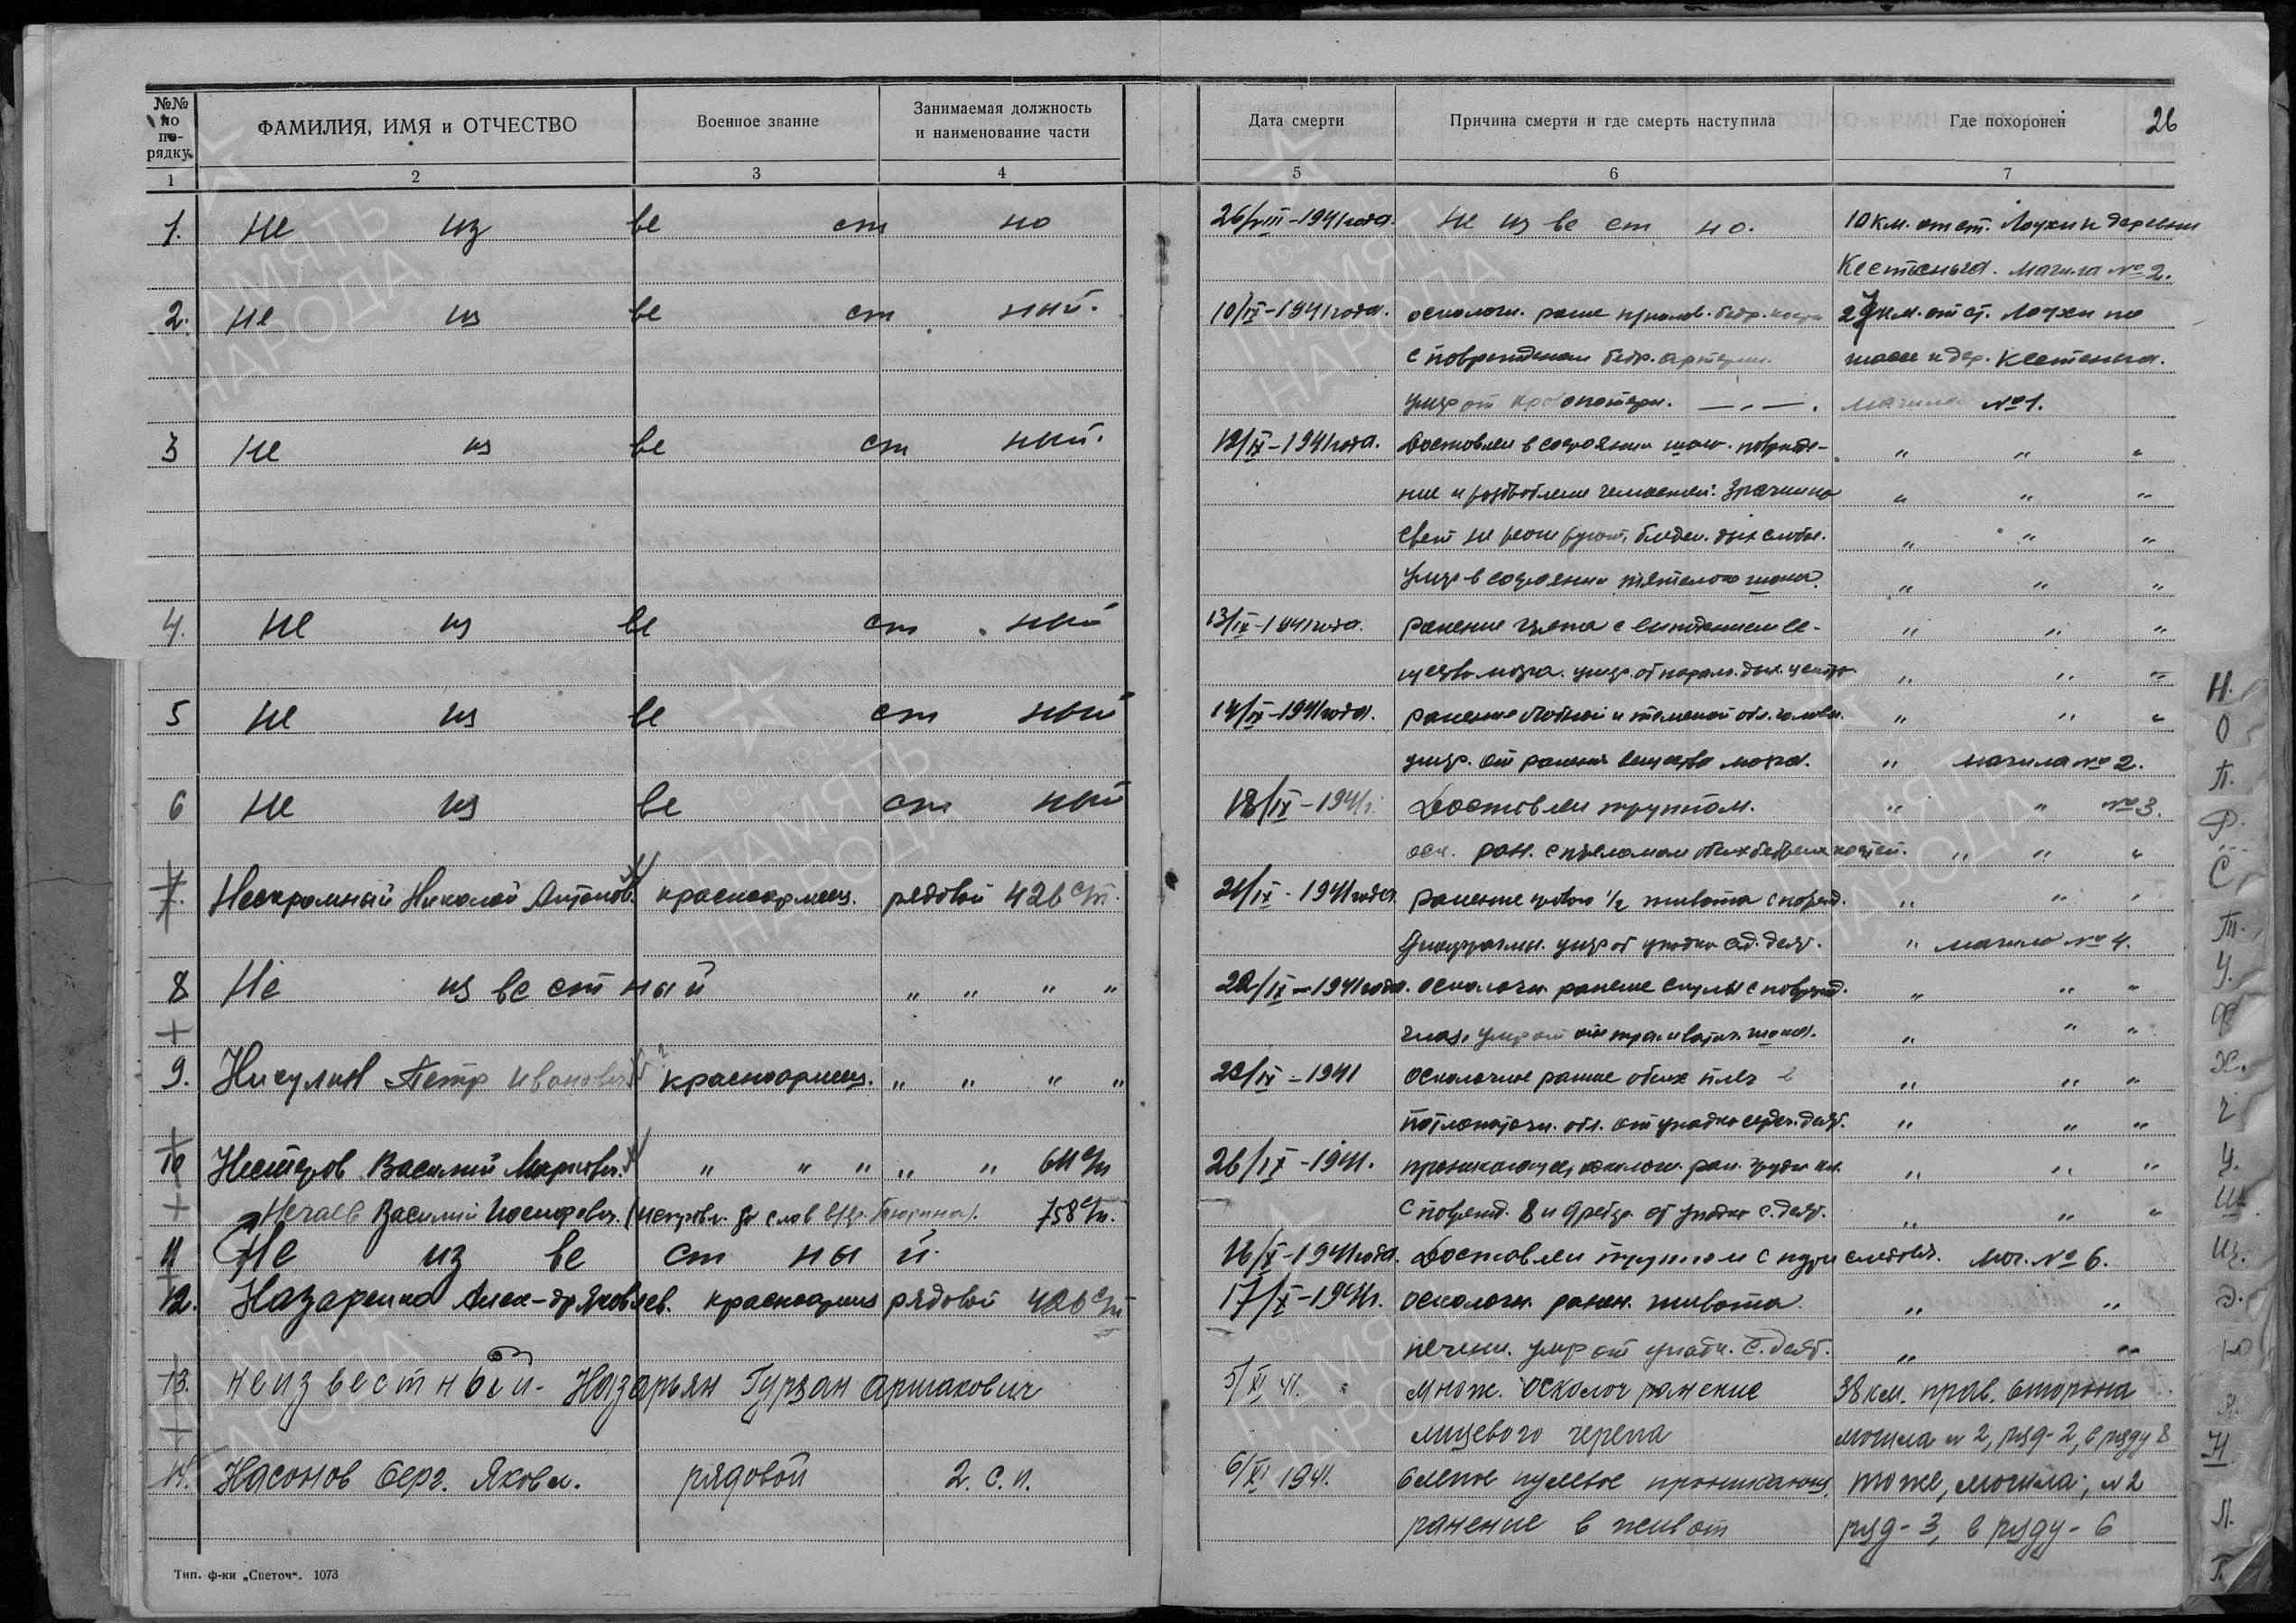 №№ по по-рядку. ФАМИЛИЯ, ИМЯ и ОТЧЕСТВО Военное звание Занимаемая должность и наименование части Дата смерти Причина смерти и где смерть наступила Где похоронен 26
1 2 3 4 5 6 7
1. Не из ве ст но 26/VIII-1941 года. Не из ве ст но. 10 км. от ст. Лоухи к деревни
Кестеньга. Магила №2.
2. Не из ве ст ный. 10/IX-1941 года. осколочн. ране бедр. 27 км. от ст. Лоухи по
с повреждением бедр. артерии. шоссе к дер. Кестеньга.
умер от кровопотери. — . — . Магила №1.
3 Не из ве ст ный. 12/IX-1941 года. Доставлен в состоянии шок. поврежде- „ „ „
ние и раздробление челюстей. Зрачки на „ „ „
свет не реагируют, бледен. „ „ „
Умер в состоянии тяжелого шока. „ „ „
4. Не из ве ст ный 13/IX-1941 года. ранение с выпадением ве- „ „ „
щества мозга. умер от „ „ „
5 Не из ве ст ный 14/IX-1941 года. ранение лобной и теменой обл. головы. „ „ „
умер. от ранения вещества мозга. „ магила №2.
6 Не из ве ст ный 18/IX-1941г. Доставлен трупом. „ „ №3.
оск. ран. с переломом обеих бедрен. костей. „ „ „
7. Нескромный Николай Антонов. красноармеец. рядовой 426 с/п. 21/IX-1941 года ранение 1/2 живота с поврежд. „ „ „
умер от упадка с.д. деят. „ магила №4.
8 Не из ве ст ный „ „ „ „ 22/IX-1941 года. осколочн. ранение скулы с поврежд. „ „ „
глаз. Умер от травматич. шока. „ „ „
9. Никулин Петр Иванович красноармеец. „ „ „ „ 22/IX-1941 осколочное ранение обеих плеч „ „ „
обл. от упадка сердеч. деят. „ „ „
10 Нестеров Василий Маркович. „ „ „ „ „ 611 с/п 26/IX-1941. проникающее осколочн. ран. груди „ „ „
Нечаев Василий Иосифович. (исправл. со слов 758 с/п. с поврежд. 8 и 9 ребер. от упадка с. деят. „ „ „
11 Не из ве ст ны й. 16/X-1941 года. Доставлен трупом с мог. №6.
12. Назаренко Алек-др Яковлев. красноармеец рядовой 426 с/п 17/X-1941г. осколочн. ранен. живота „ „
печени. умер от упадк. с. деят. „ „
13. неизвестный - Назарьян Гурзан Аршакович 5/XI 41. множ. осколоч ранение 38 км. прав. сторона
лицевого черепа могила №2, ряд-2, в ряду 8
14. Насонов Серг. Яковл. рядовой 2. с.п. 6/XI 1941. слепое пулевое проникающ. тоже, могила, №2
ранение в живот ряд-3, в ряду-6
Тип. ф-ки „Светоч“. 1073
Н.
О
П.
Р.
С
Т.
У.
Ф
Х.
Ч
Ц.
Ш.
Щ.
Э.
Ю
Я.
ПАМЯТЬ
НАРОДА